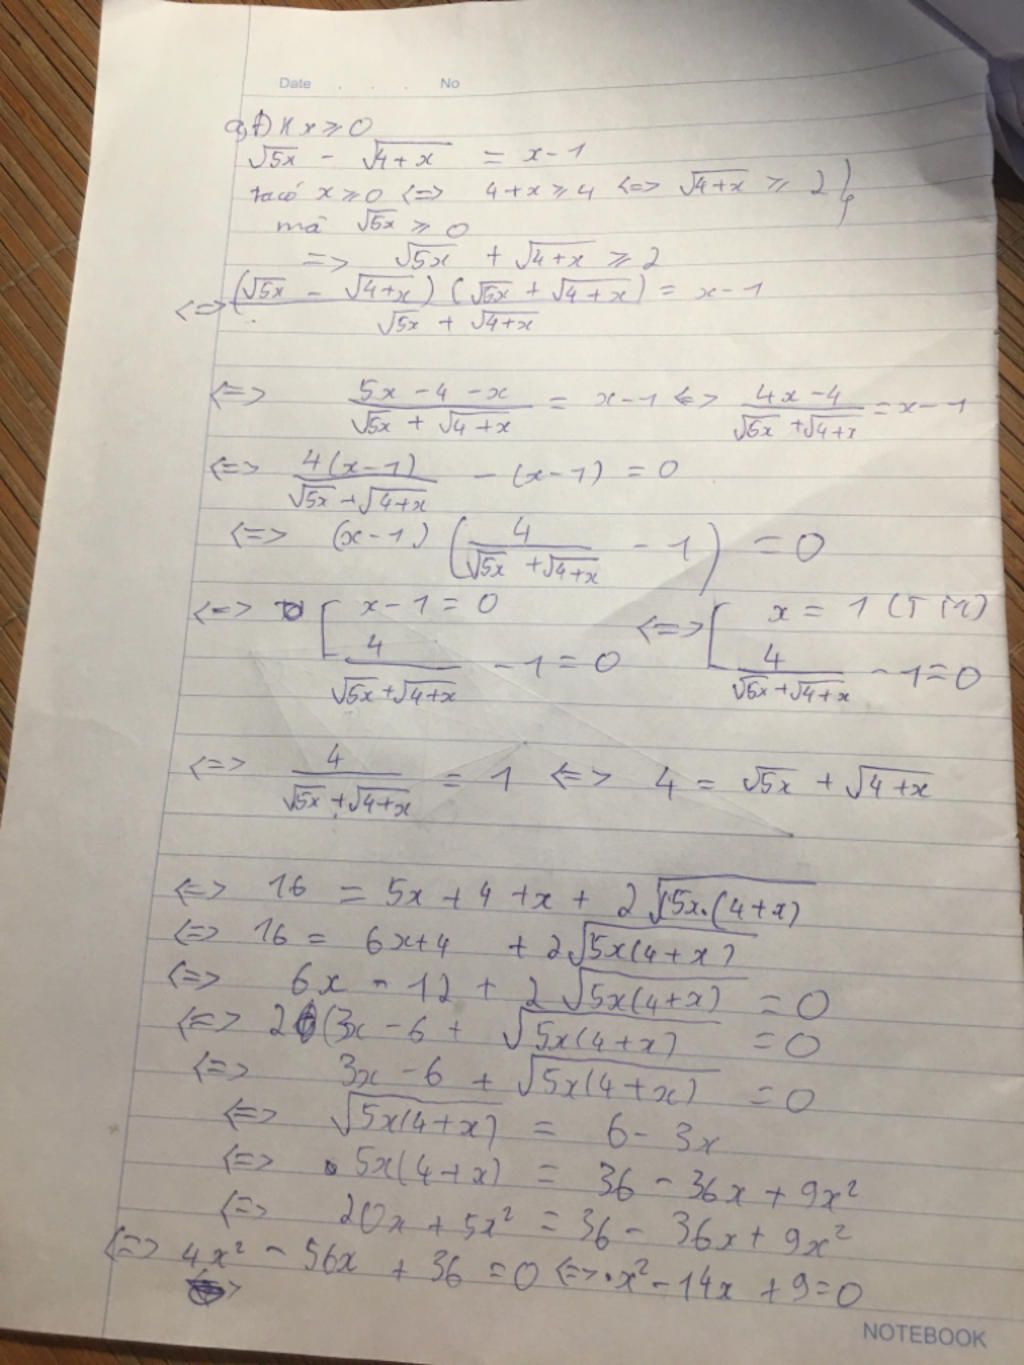 Date . . . No
a, ĐK x ≥ 0
√5x - √4+x = x-1
ta có x ≥ 0 <=> 4+x ≥ 4 <=> √4+x ≥ 2 }
mà √5x ≥ 0
=> √5x + √4+x ≥ 2
<=> (√5x - √4+x)(√5x + √4+x) / √5x + √4+x = x-1
<=> 5x-4-x / √5x + √4+x = x-1 <=> 4x-4 / √5x + √4+x = x-1
<=> 4(x-1) / √5x + √4+x - (x-1) = 0
<=> (x-1) (4 / √5x + √4+x - 1) = 0
<=> [ x-1 = 0 <=> [ x = 1 (TM)
4 / √5x + √4+x - 1 = 0 4 / √5x + √4+x - 1 = 0
<=> 4 / √5x + √4+x = 1 <=> 4 = √5x + √4+x
<=> 16 = 5x + 4 + x + 2√5x.(4+x)
<=> 16 = 6x+4 + 2√5x(4+x)
<=> 6x - 12 + 2√5x(4+x) = 0
<=> 2(3x - 6 + √5x(4+x) = 0
<=> 3x - 6 + √5x(4+x) = 0
<=> √5x(4+x) = 6 - 3x
<=> 5x(4+x) = 36 - 36x + 9x²
<=> 20x + 5x² = 36 - 36x + 9x²
<=> 4x² - 56x + 36 = 0 <=> x² - 14x + 9 = 0
NOTEBOOK